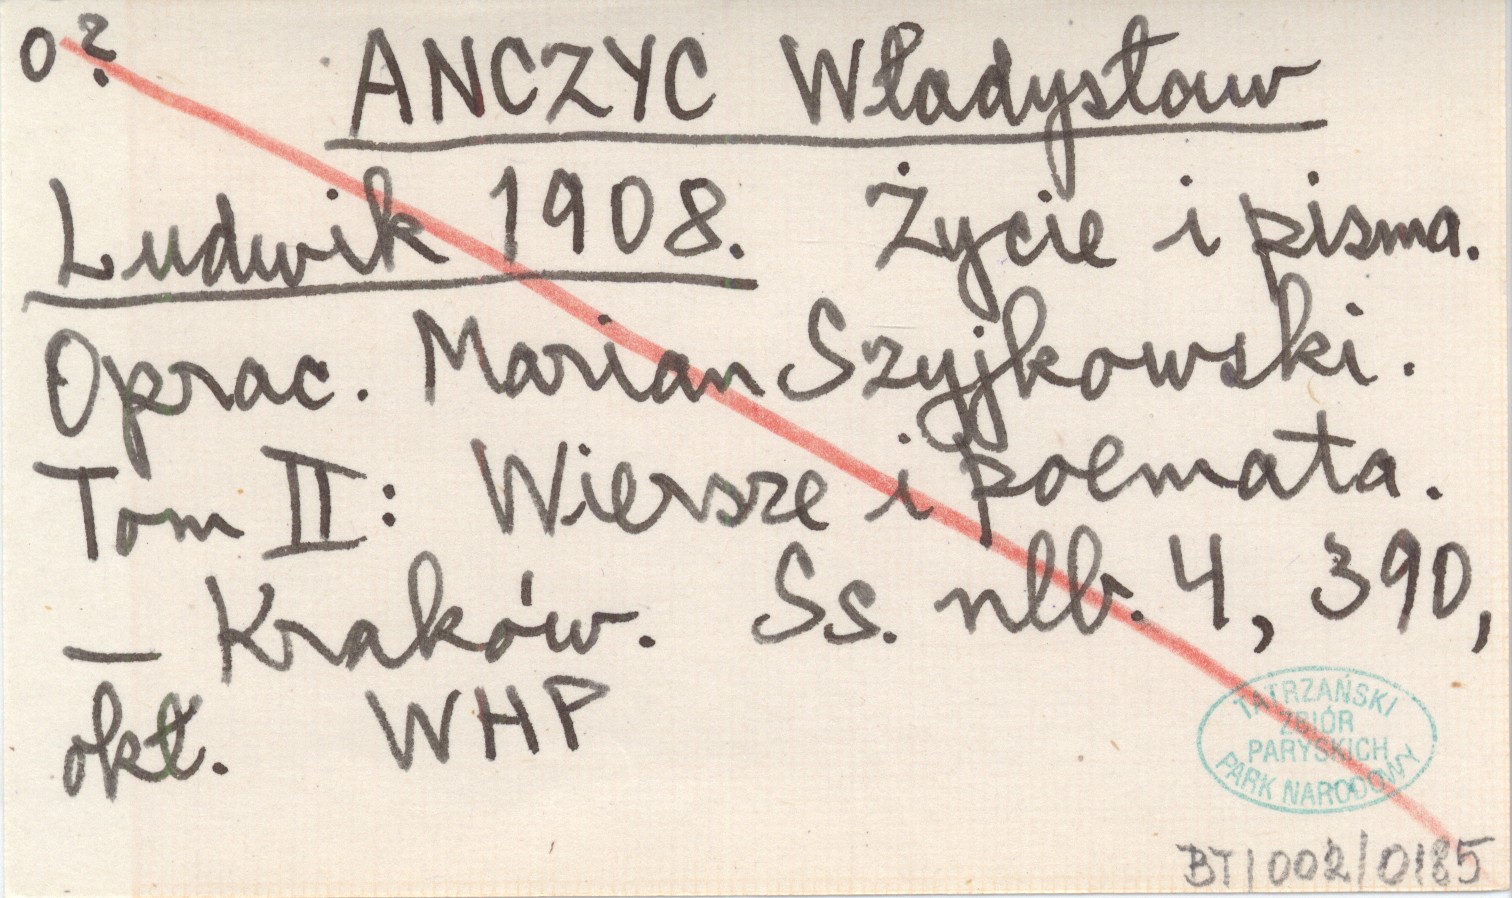 o?
ANCZYC Władysław
Ludwik 1908. Życie i pisma.
Oprac. Marian Szyjkowski.
Tom II: Wiersze i poemata.
— Kraków. Ss. nlb. 4, 390,
okł. WHP
TATRZAŃSKI
ZBIÓR
PARYSKICH
PARK NARODOWY
BT/002/0185